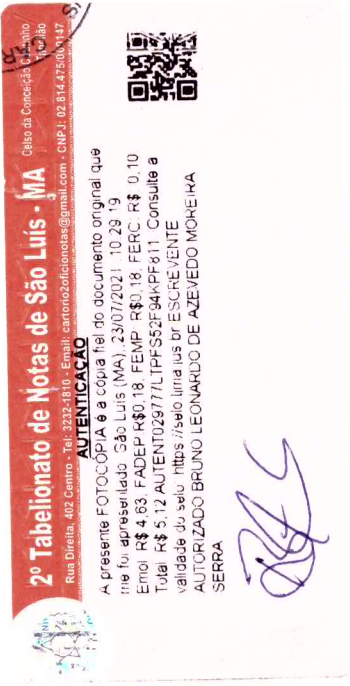 2º Tabelionato de Notas de São Luís - MA
Celso da Conceição Coutinho
Tabelião
Rua Direita, 402 Centro - Tel: 3232-1810 - Email: cartorio2oficionotas@gmail.com - CNPJ: 02.814.475/0001-47
AUTENTICAÇÃO
A presente FOTOCÓPIA é a cópia fiel do documento original que
me foi apresentado. São Luís (MA), 23/07/2021 10:29:19
Emol R$ 4,63, FADEP R$0,18, FEMP: R$0,18, FERC: R$ 0,10
Total R$ 5,12 AUTENT029777LTPFS52F94KPF811 Consulte a
validade do selo: https://selo.tjma.jus.br ESCREVENTE
AUTORIZADO BRUNO LEONARDO DE AZEVEDO MOREIRA
SERRA